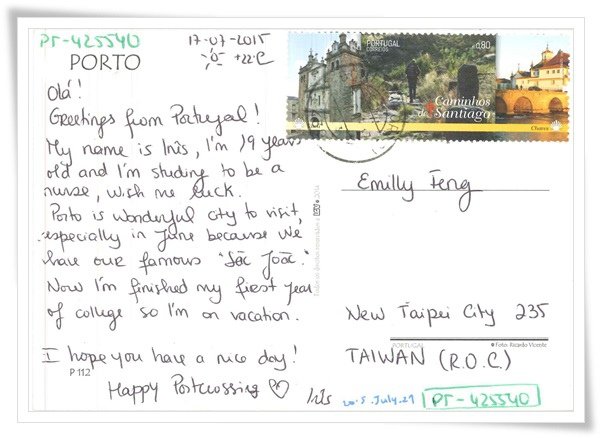 PT-425540
17-07-2015
+22°C
PORTO
Olá!
Greetings from Portugal!
My name is Inês, I'm 19 years
old and I'm studing to be a
nurse, wish me luck.
Porto is wonderful city to visit,
especially in June because we
have our famous "São João."
Now I'm finished my first year
of college so I'm on vacation.
I hope you have a nice day!
P 112
Happy Postcrossing ♡
Inês
PORTUGAL
CORREIOS
€0,80
Caminhos
de Santiago
Chaves
Emilly Feng
New Taipei City 235
PORTUGAL
© Foto: Ricardo Vicente
TAIWAN (R.O.C)
2015.July.29
PT-425540